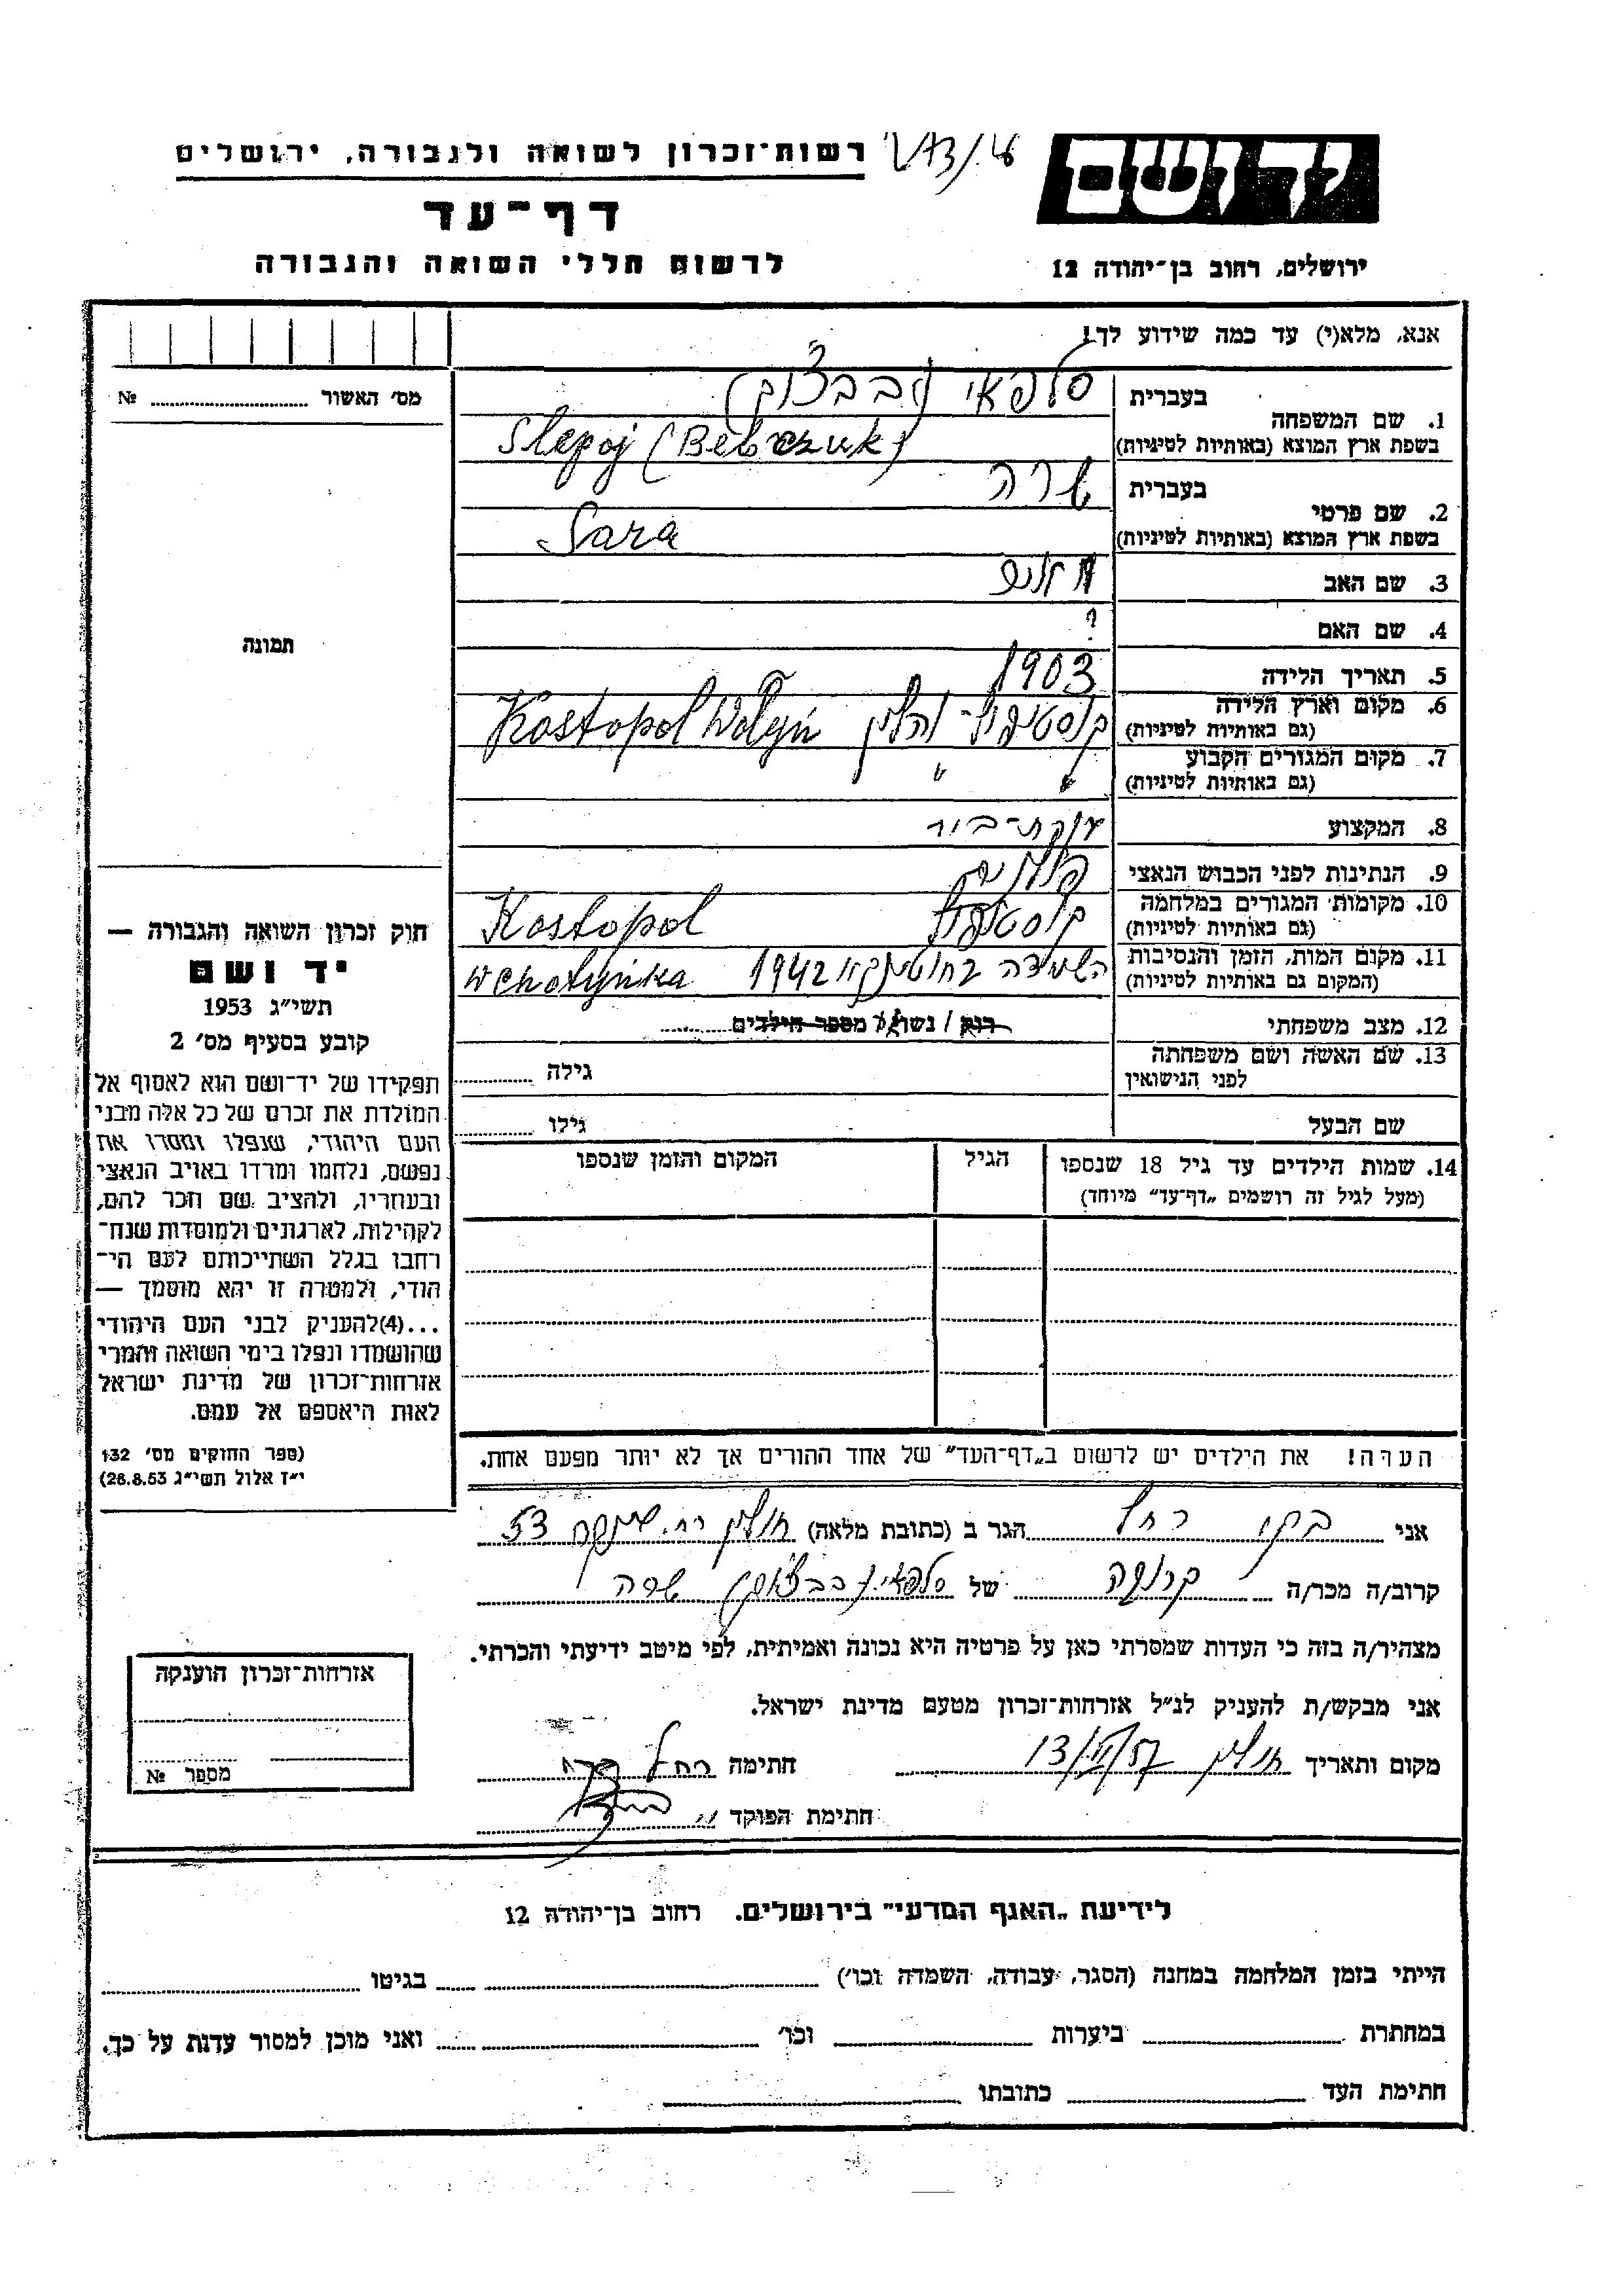 יד ושם
רשות-זכרון לשואה ולגבורה, ירושלים
דף-עד
ירושלים, רחוב בן-יהודה 12
לרשום חללי השואה והגבורה
אנא, מלא(י) עד כמה שידוע לך!
מס' האשור № 
1. שם המשפחה
בעברית סלפאי
בשפת ארץ המוצא (באותיות לטיניות) Slepoj
2. שם פרטי
בעברית שרה
בשפת ארץ המוצא (באותיות לטיניות) Sara
3. שם האב
4. שם האם ?
תמונה
5. תאריך הלידה 1903
6. מקום וארץ הלידה
(גם באותיות לטיניות) קוסטופול - ווהלין Kostopol Wołyń
7. מקום המגורים הקבוע
(גם באותיות לטיניות) " "
8. המקצוע עקרת-בית
9. הנתינות לפני הכבוש הנאצי פולנית
10. מקומות המגורים במלחמה
(גם באותיות לטיניות) קוסטופול Kostopol
11. מקום המות, הזמן והנסיבות
(המקום גם באותיות לטיניות) השמדה 1942
12. מצב משפחתי רוק / נשוי/אה מספר הילדים
13. שם האשה ושם משפחתה
לפני הנישואין גילה
שם הבעל גילו
14. שמות הילדים עד גיל 18 שנספו
(מעל לגיל זה רושמים „דף-עד" מיוחד)
הגיל
המקום והזמן שנספו
חוק זכרון השואה והגבורה —
יד ושם
תשי"ג 1953
קובע בסעיף מס' 2
תפקידו של יד-ושם הוא לאסוף אל
המולדת את זכרם של כל אלה מבני
העם היהודי, שנפלו ומסרו את
נפשם, נלחמו ומרדו באויב הנאצי
ובעוזריו, ולהציב שם וזכר להם,
לקהילות, לארגונים ולמוסדות שנח-
רבו בגלל השתייכותם לעם הי-
הודי, ולמטרה זו יהא מוסמך —
...(4)להעניק לבני העם היהודי
שהושמדו ונפלו בימי השואה והמרי
אזרחות-זכרון של מדינת ישראל
לאות היאספם אל עמם.
(ספר החוקים מס' 132
י"ז אלול תשי"ג 28.8.53)
הערה! את הילדים יש לרשום ב„דף-העד" של אחד ההורים אך לא יותר מפעם אחת.
אני רחל הגר ב (כתובת מלאה) חולון רח. 53
קרוב/ה מכר/ה קרובה של סלפאי שרה
מצהיר/ה בזה כי העדות שמסרתי כאן על פרטיה היא נכונה ואמיתית, לפי מיטב ידיעתי והכרתי.
אני מבקש/ת להעניק לנ"ל אזרחות-זכרון מטעם מדינת ישראל.
מקום ותאריך חולון חתימה רחל
חתימת הפוקד
אזרחות-זכרון הוענקה
מספר №
לידיעת „האגף המדעי" בירושלים. רחוב בן-יהודה 12
הייתי בזמן המלחמה במחנה (הסגר, עבודה, השמדה וכו') בגיטו
במחתרת ביערות וכו' ואני מוכן למסור עדות על כך.
חתימת העד כתובתו